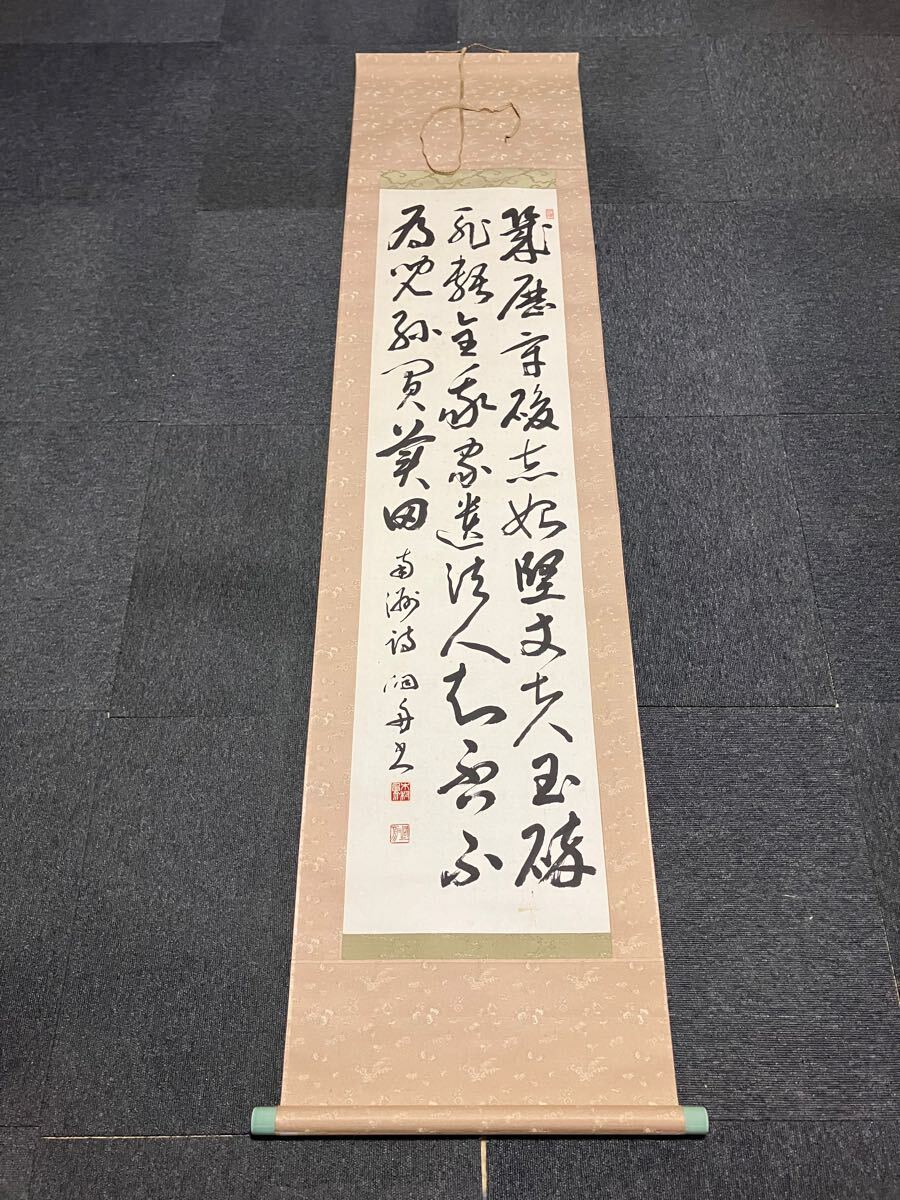 幾歴辛酸志始堅丈夫玉碎
恥甎全我家遺法人知否不
為兒孫買美田 南洲詩 舟書